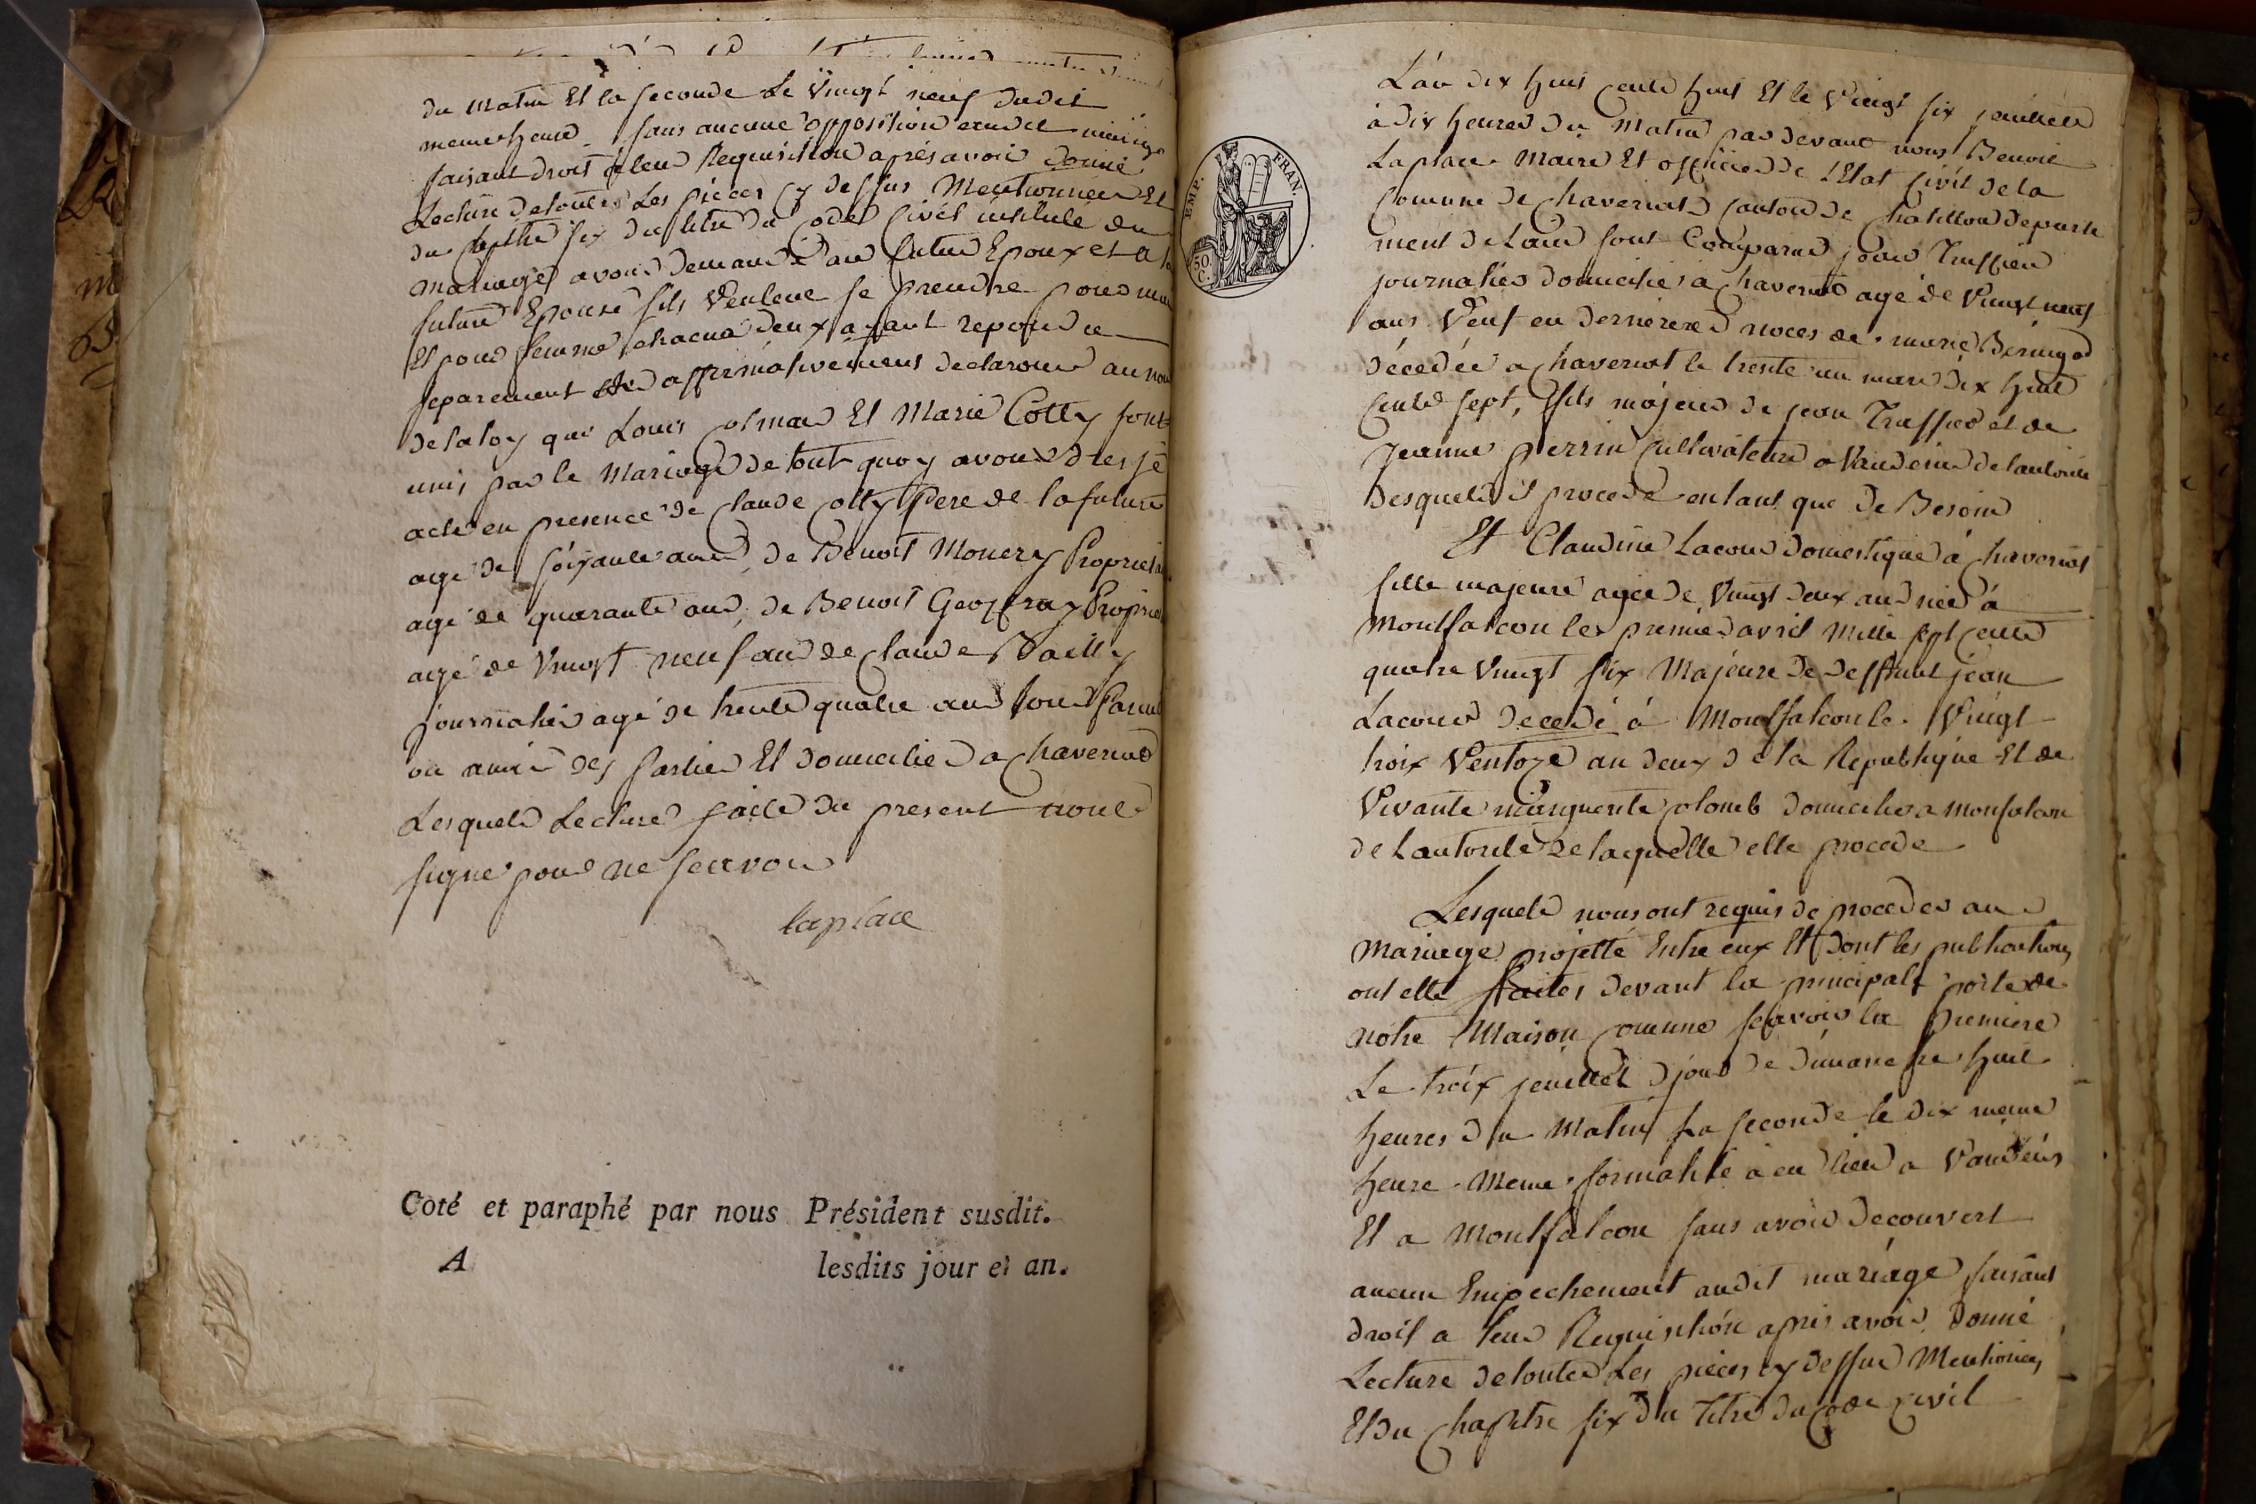 du matin Et la seconde Le Vingt neuf dudit
meme heure sans aucune opposition audit mariage
faisant droit a leur Requisition aprés avoir donné
Lecture de toutes Les piéces cy dessus Mentionnees Et
du chapitre six du titre du code civil intitulé du
mariage avons demandé au futur Epoux et a la
future Epouse s'ils veulent se prendre pour mari
Et pour femme chacun deux ayant repondu
separement et affirmativement declarons au nom
de la loy que Louis colmard Et Marie Cotty sont
unis par le mariage de tout quoy avons dressé
acte en presence de claude cotty pere de la future
agé de soixante ans, de Benoit Monery Proprietaire
agé de quarante ans, de Benoit Geoffray Proprie
agé de Vingt neuf ans de claude Vailly
journalier agé de trente quatre ans tous Parens
ou amis des parties Et domicilies a chaveriat
Lesquels Lecture faite du present n'ont
signé pour ne scavoir
laplace
Coté et paraphé par nous Président susdit.
A lesdits jour et an.
L'an dix huit cents huit Et le Vingt six juillet
à dix heures du matin par devant nous Benoit
Laplace Maire Et officier de l'Etat civil de la
comune de chaveriat canton de chatillon departe
ment de L'ain sont comparus jean Traffier
journalier domicilié a chaveriat agé de Vingt neuf
ans Veuf en dernieres noces de marie Béringer
décedée a chaveriat le trente un mars dix huit
cents sept, fils majeur de jean Traffier et de
Jeanne perrin cultivateurs a Vandeins de l'autorité
desquels il procede en tant que de Besoin
Et Claudine Lacour domestique à chaveriat
fille majeure agée de Vingt deux ans née à
Montfalcon le premier avril mille sept cents
quatre Vingt six Majeure de deffunt jean
Lacour decedé à Montfalcon le Vingt
troix Ventoze an deux de la Republique Et de
Vivante marguerite colomb domicilie a monfalcon
de L'autorité de laquelle elle procede
Lesquels nous ont requis de proceder au
mariage projetté Entre eux Et dont les publications
ont etté faites devant la principale porte de
notre Maison comune scavoir la premiere
Le troix jeuillet jour de dimanche huit
heures du Matin La seconde le dix meme
heure. Meme formalité a eu lieu a Vandeins
Et a Montfalcon sans avoir decouvert
aucun Empechement audit mariage faisant
droit a leur Requisition aprés avoir Donné
Lecture de toutes Les piéces cy dessus Mentionnées
Et du chapitre six du titre du code civil
EMP. FRAN.
50 C.